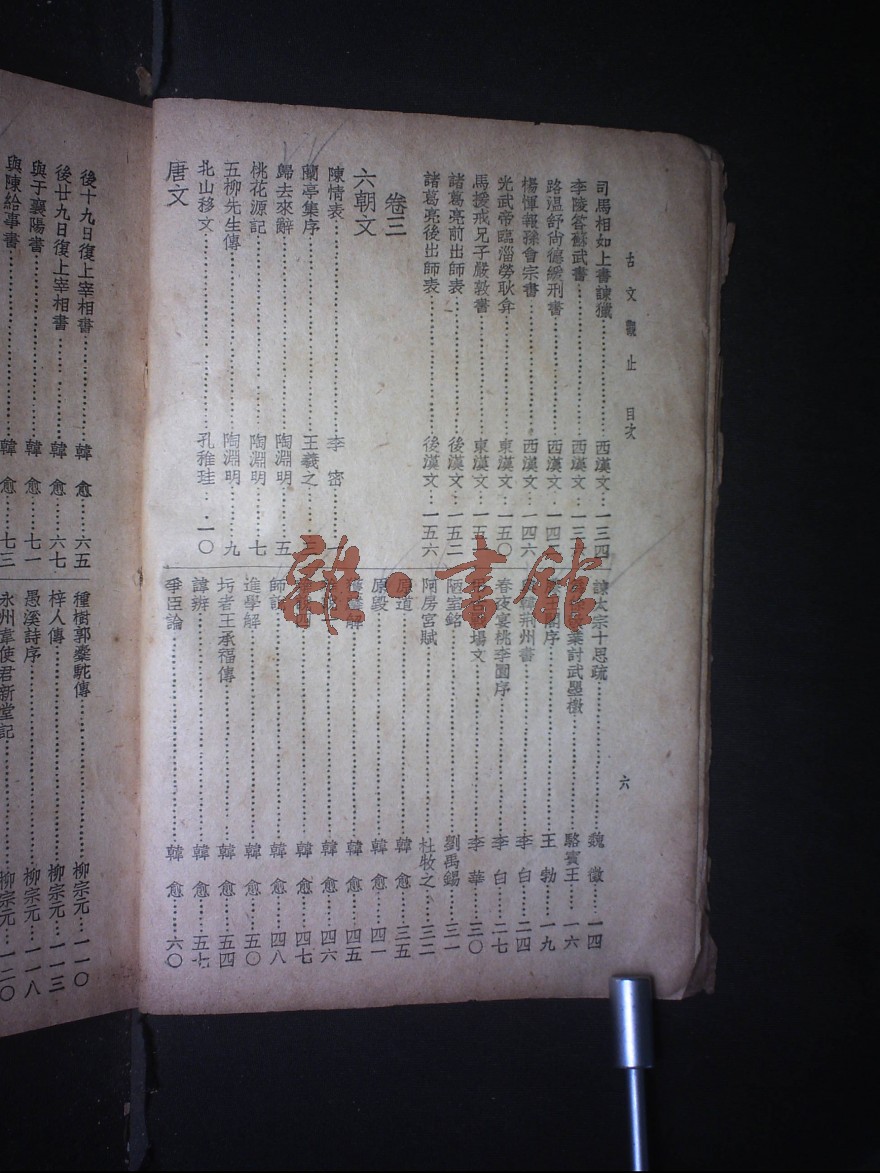 古文觀止 目次
六
司馬相如上書諫獵……西漢文…一三四
李陵答蘇武書……西漢文…一三
路溫舒尚德緩刑書……西漢文…一四
楊惲報孫會宗書……西漢文…一四六
光武帝臨淄勞耿弇……東漢文…一五〇
馬援戒兄子嚴敦書……東漢文…一五
諸葛亮前出師表……後漢文…一五二
諸葛亮後出師表……後漢文…一五六
卷三
六朝文
陳情表……李密…一
蘭亭集序……王羲之…三
歸去來辭……陶淵明…五
桃花源記……陶淵明…七
五柳先生傳……陶淵明…九
北山移文……孔稚珪…一〇
唐文
諫太宗十思疏……魏徵…一四
討武曌檄……駱賓王…一六
序……王勃…一九
荆州書……李白…二四
春夜宴桃李園序……李白…二七
場文……李華…三〇
陋室銘……劉禹錫…三一
阿房宮賦……杜牧之…三二
原道……韓愈…三五
原毀……韓愈…四一
解……韓愈…四五
韓愈…四六
韓愈…四七
師說……韓愈…四八
進學解……韓愈…五〇
圬者王承福傳……韓愈…五四
諱辨……韓愈…五七
爭臣論……韓愈…六〇
後十九日復上宰相書……韓愈…六五
後廿九日復上宰相書……韓愈…六七
與于襄陽書……韓愈…七一
與陳給事書……韓愈…七三
種樹郭橐駝傳……柳宗元…一一〇
梓人傳……柳宗元…一一三
愚溪詩序……柳宗元…一一八
永州韋使君新堂記……柳宗元…一二〇
雜·書館